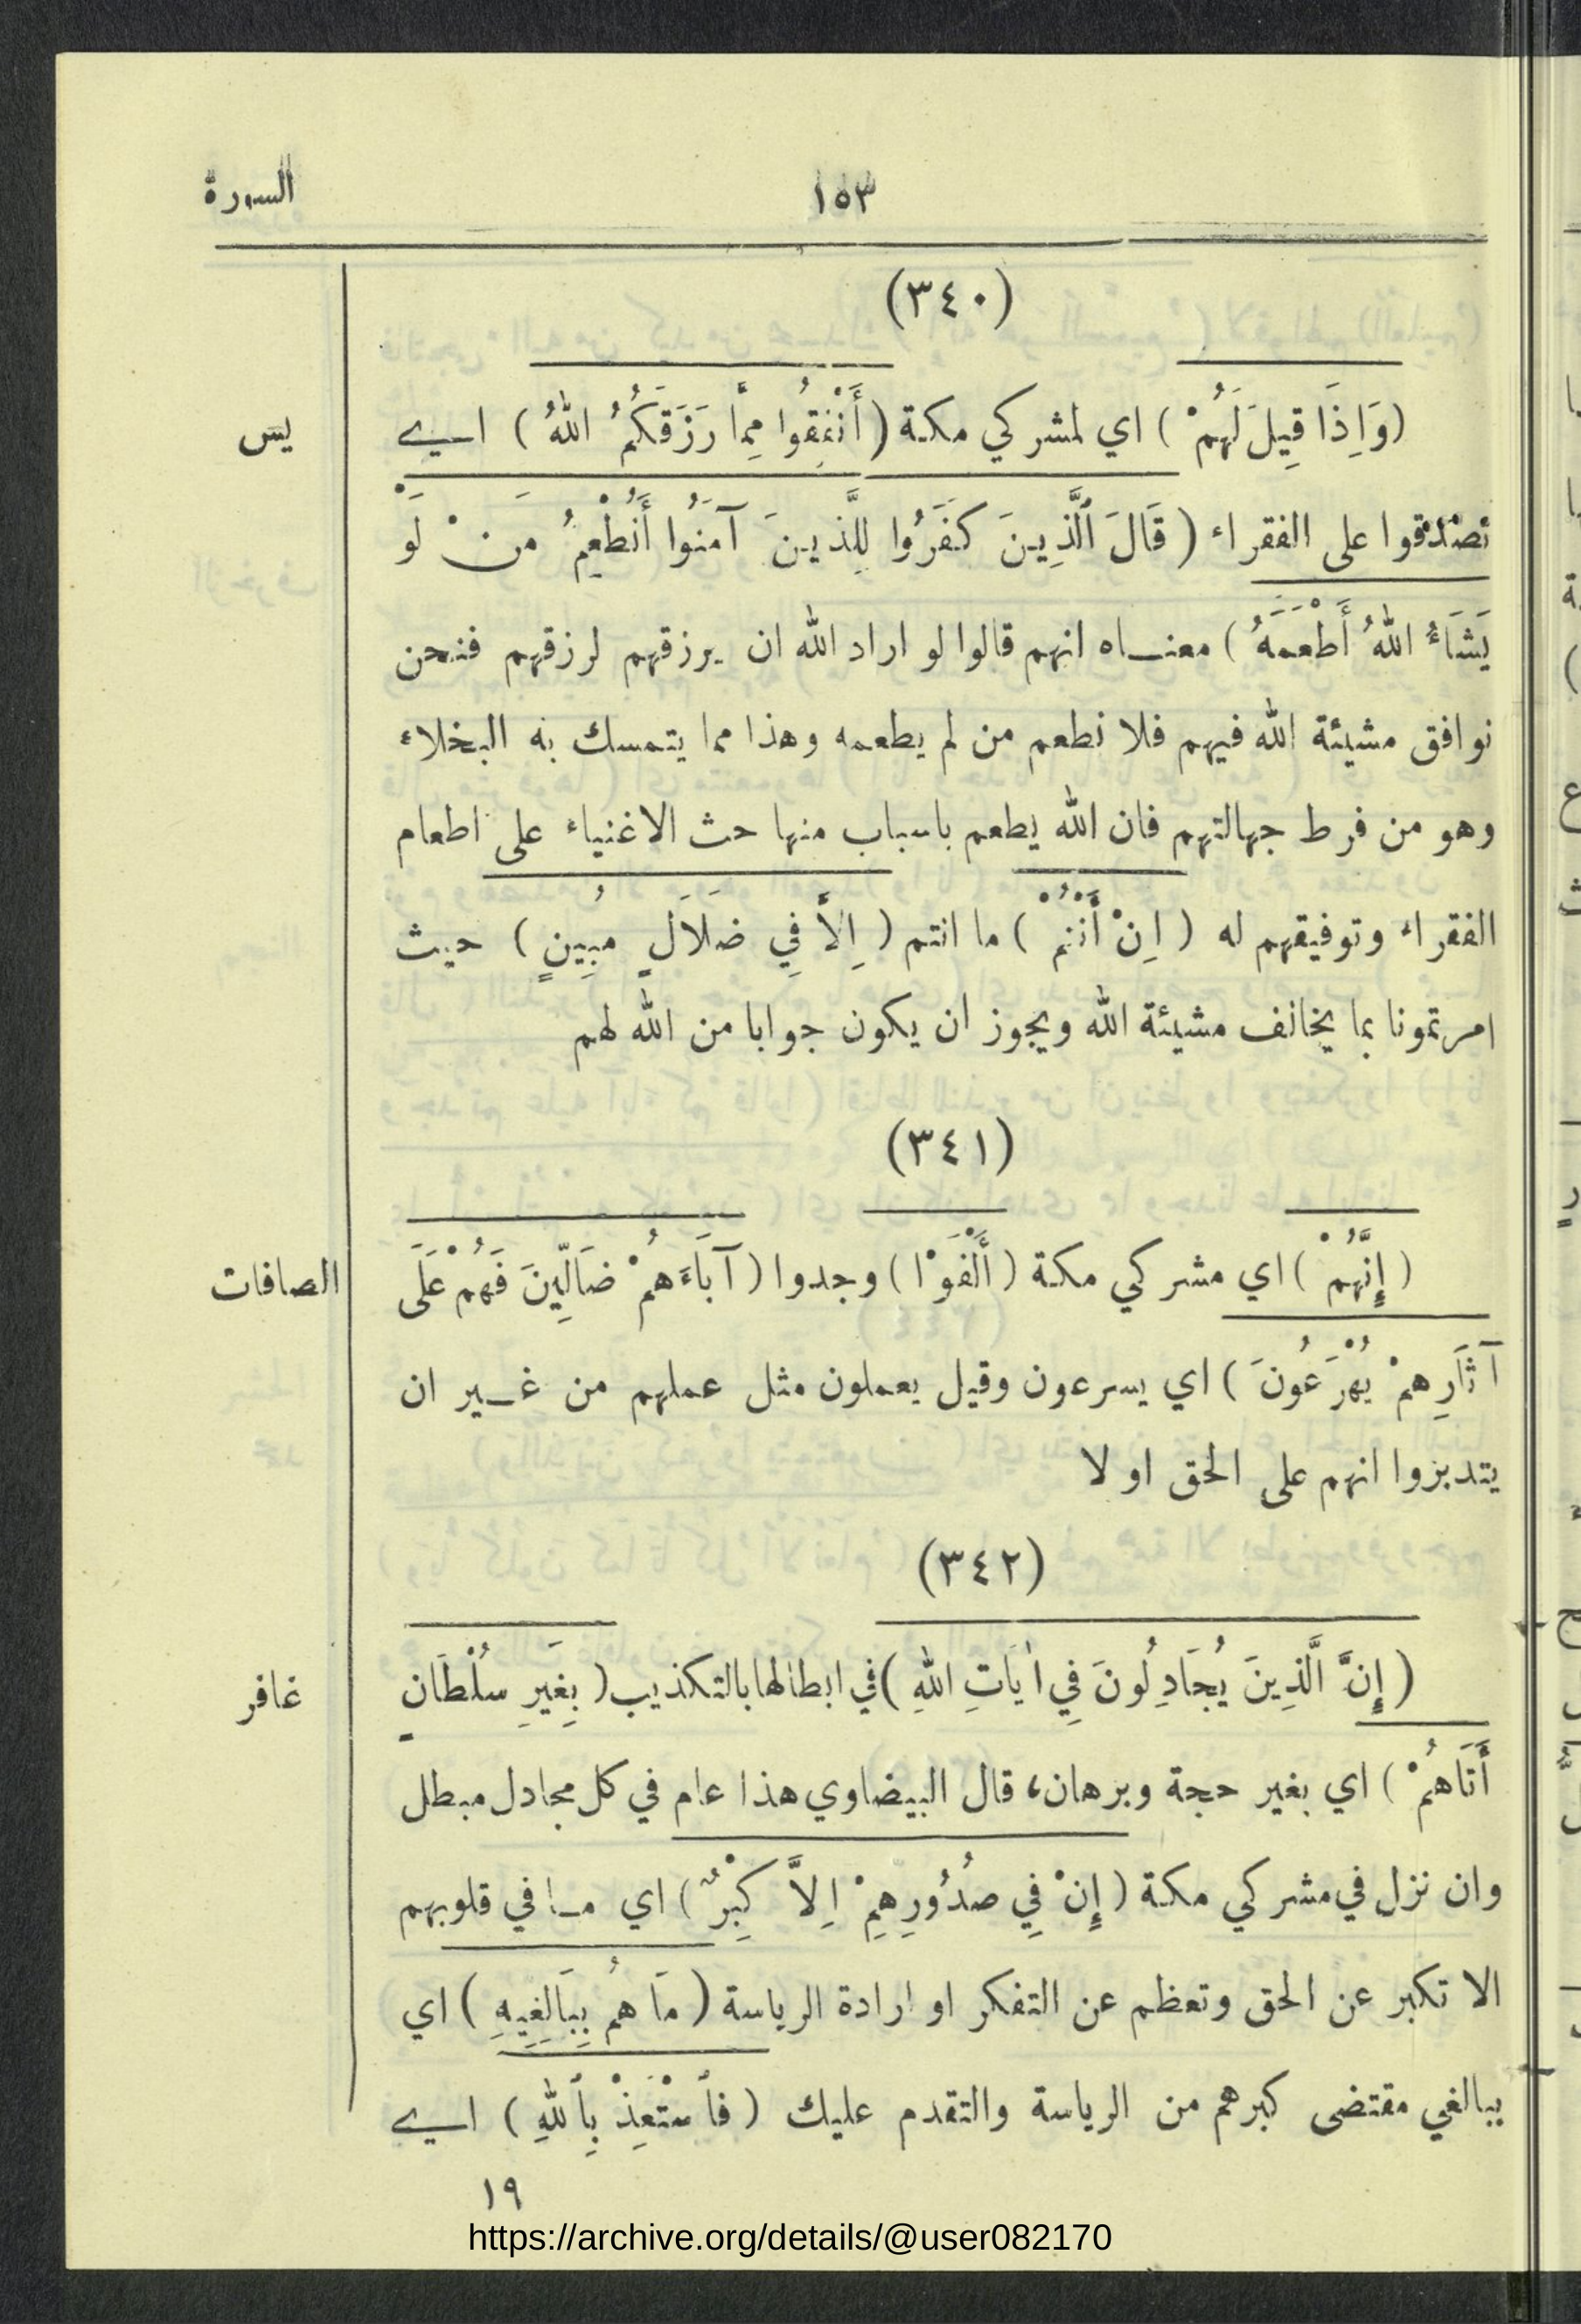 ١٥٣
السورة
(٣٤٠)
(وَاِذَا قِيلَ لَهُمْ ) اي لمشركي مكة ( أَنْفِقُوا مِمَّا رَزَقَكُمُ اللهُ ) اي
يس
تصدقوا على الفقراء ( قَالَ ٱلَّذِينَ كَفَرُوا لِلَّذينَ آمَنُوا أَنُطْعِمُ مَنْ لَوْ
يَشَاءُ اللهُ أَطْعَمَهُ ) معناه انهم قالوا لو اراد الله ان يرزقهم لرزقهم فنحن
نوافق مشيئة الله فيهم فلا نطعم من لم يطعمه وهذا مما يتمسك به البخلاء
وهو من فرط جهالتهم فان الله يطعم باسباب منها حث الاغنياء على اطعام
الفقراء وتوفيقهم له ( اِنْ أَنْتُمْ ) ما انتم ( اِلاَّ فِي ضَلَالٍ مُبِينٍ ) حيث
امرتمونا بما يخالف مشيئة الله ويجوز ان يكون جوابا من الله لهم
(٣٤١)
( إِنَّهُمْ ) اي مشركي مكة ( أَلْفَوْا ) وجدوا ( آبَاءَهُمْ ضَالِّينَ فَهُمْ عَلَى
الصافات
آثَارِهِمْ يُهْرَعُونَ ) اي يسرعون وقيل يعملون مثل عملهم من غير ان
يتدبروا انهم على الحق او لا
(٣٤٢)
( إِنَّ الَّذِينَ يُجَادِلُونَ فِي اٰيَاتِ اللهِ ) في ابطالها بالتكذيب ( بِغَيْرِ سُلْطَانٍ
غافر
أَتَاهُمْ ) اي بغير حجة وبرهان، قال البيضاوي هذا عام في كل مجادل مبطل
وان نزل في مشركي مكة ( إِنْ فِي صُدُورِهِمْ اِلاَّ كِبْرٌ ) اي ما في قلوبهم
الا تكبر عن الحق وتعظم عن التفكر او ارادة الرياسة ( مَا هُمْ بِبَالِغِيهِ ) اي
ببالغي مقتضى كبرهم من الرياسة والتقدم عليك ( فَٱسْتَعِذْ بِٱللهِ ) اي
١٩
https://archive.org/details/@user082170